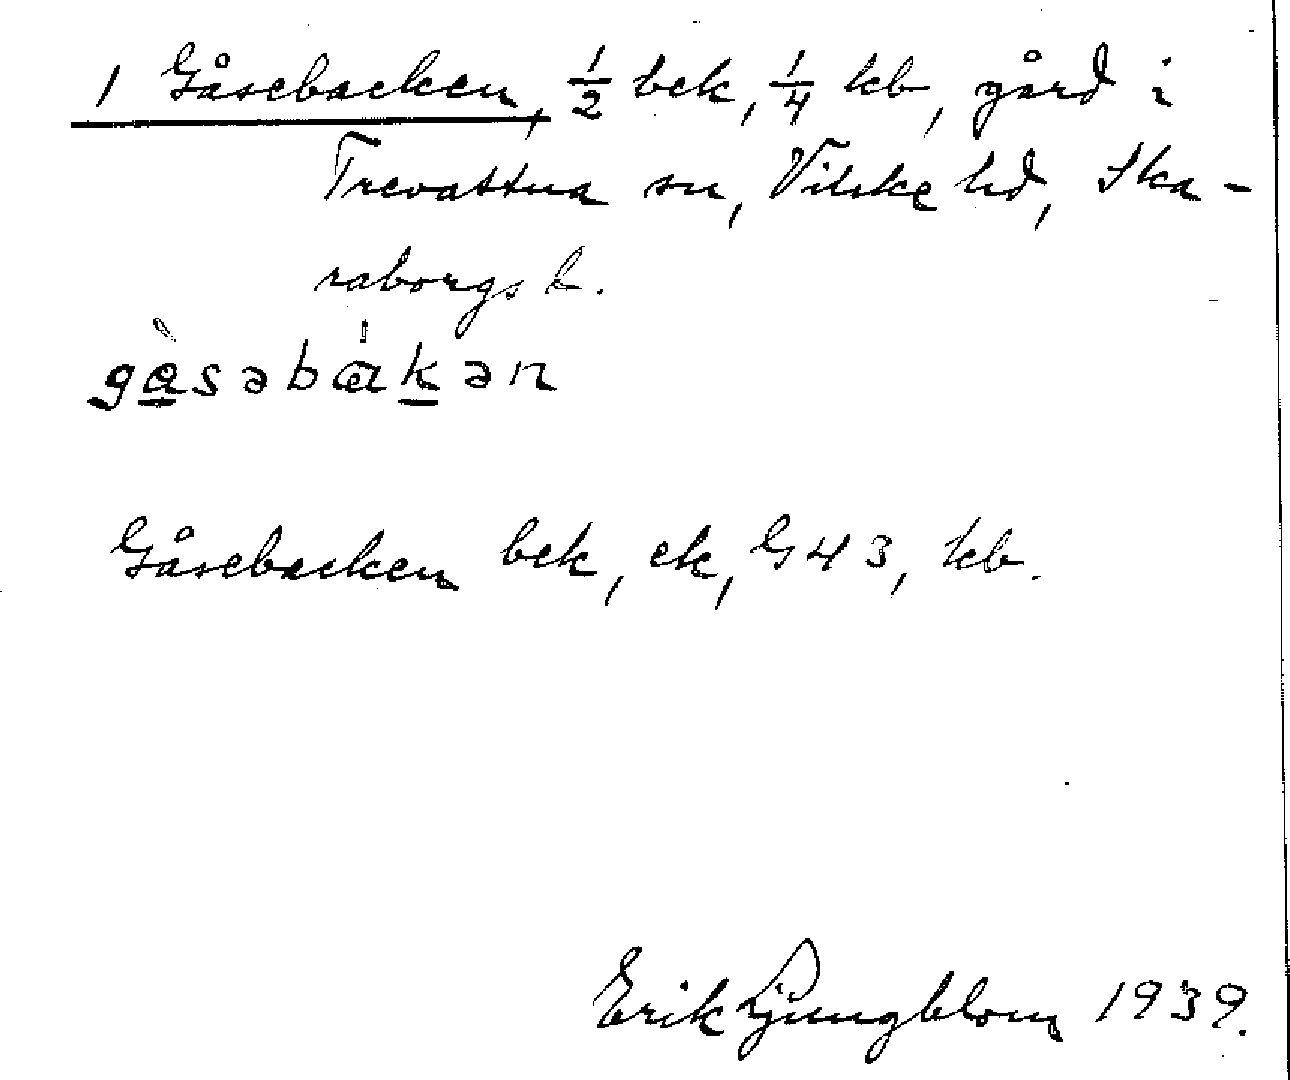 1 Gåsebacken, 1/2 bek, 1/4 kb, gård i
Trevattna sn, Vilske hd, Ska-
raborgs l.
gåsəbákən
Gåsebacken bek, ek, G43, kb.
Erik Ljungblom 1939.